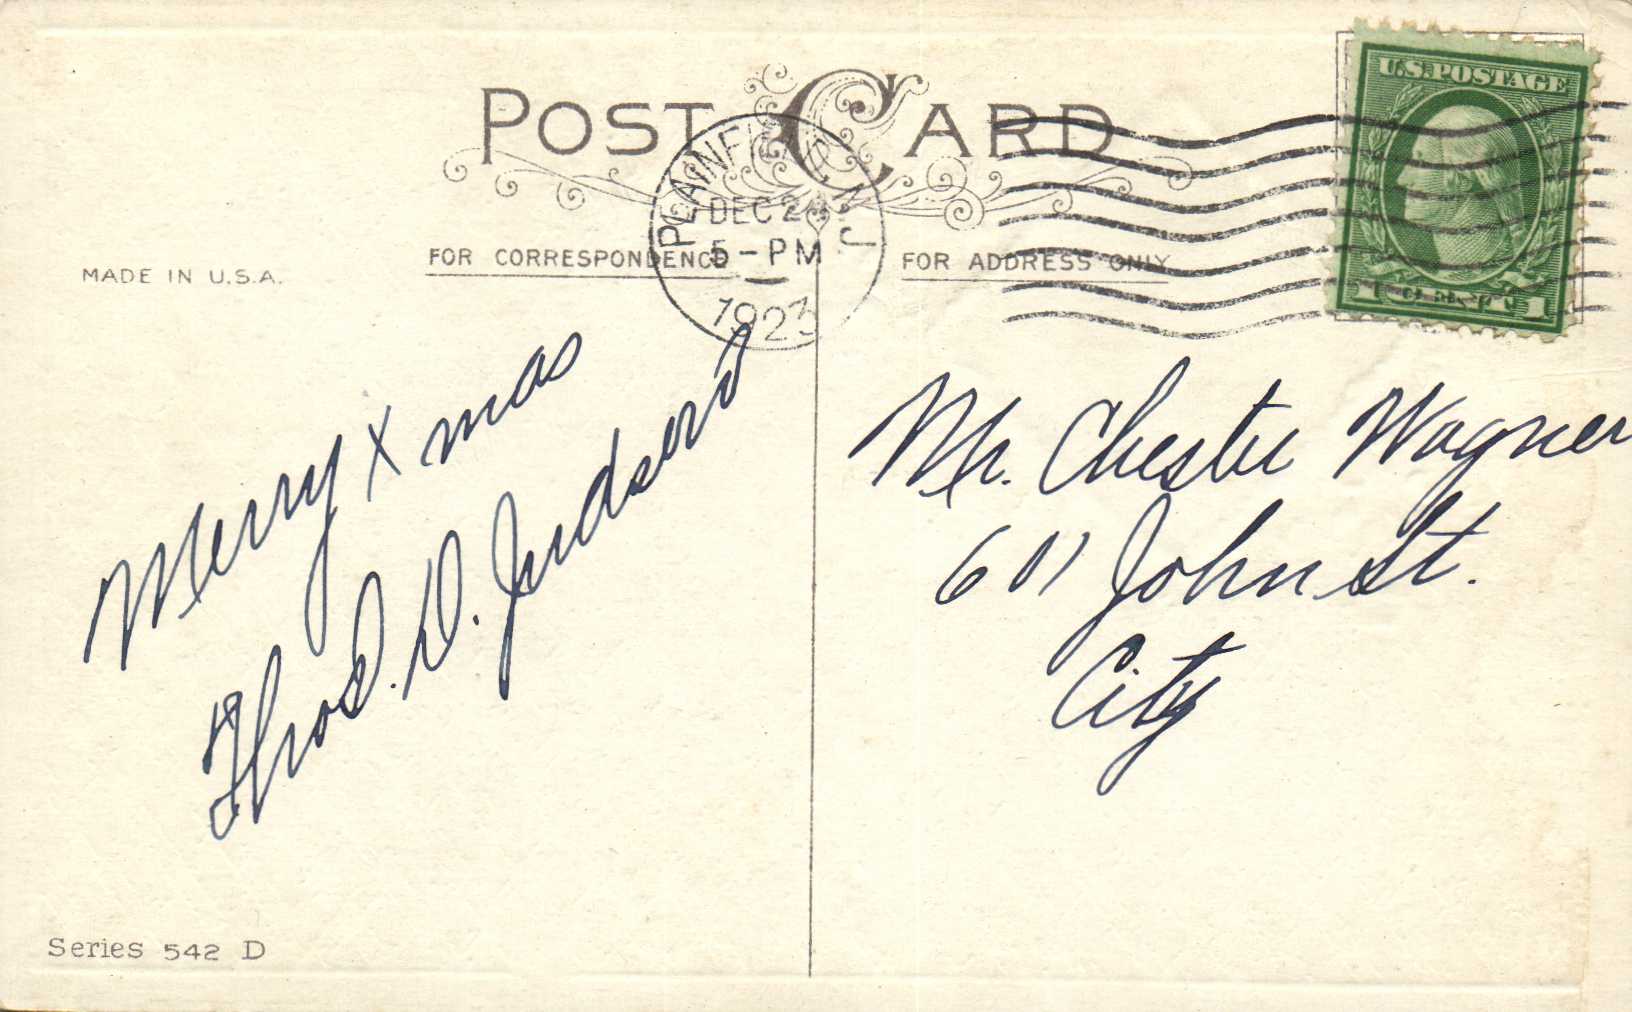 POST CARD
U.S. POSTAGE
1 CENT 1
PLAINFIELD N J
DEC 24
5 - PM
1923
MADE IN U.S.A.
FOR CORRESPONDENCE
FOR ADDRESS ONLY
Merry Xmas
Thos. D. Judson
Mr. Chester Wagner
611 John St.
City
Series 542 D